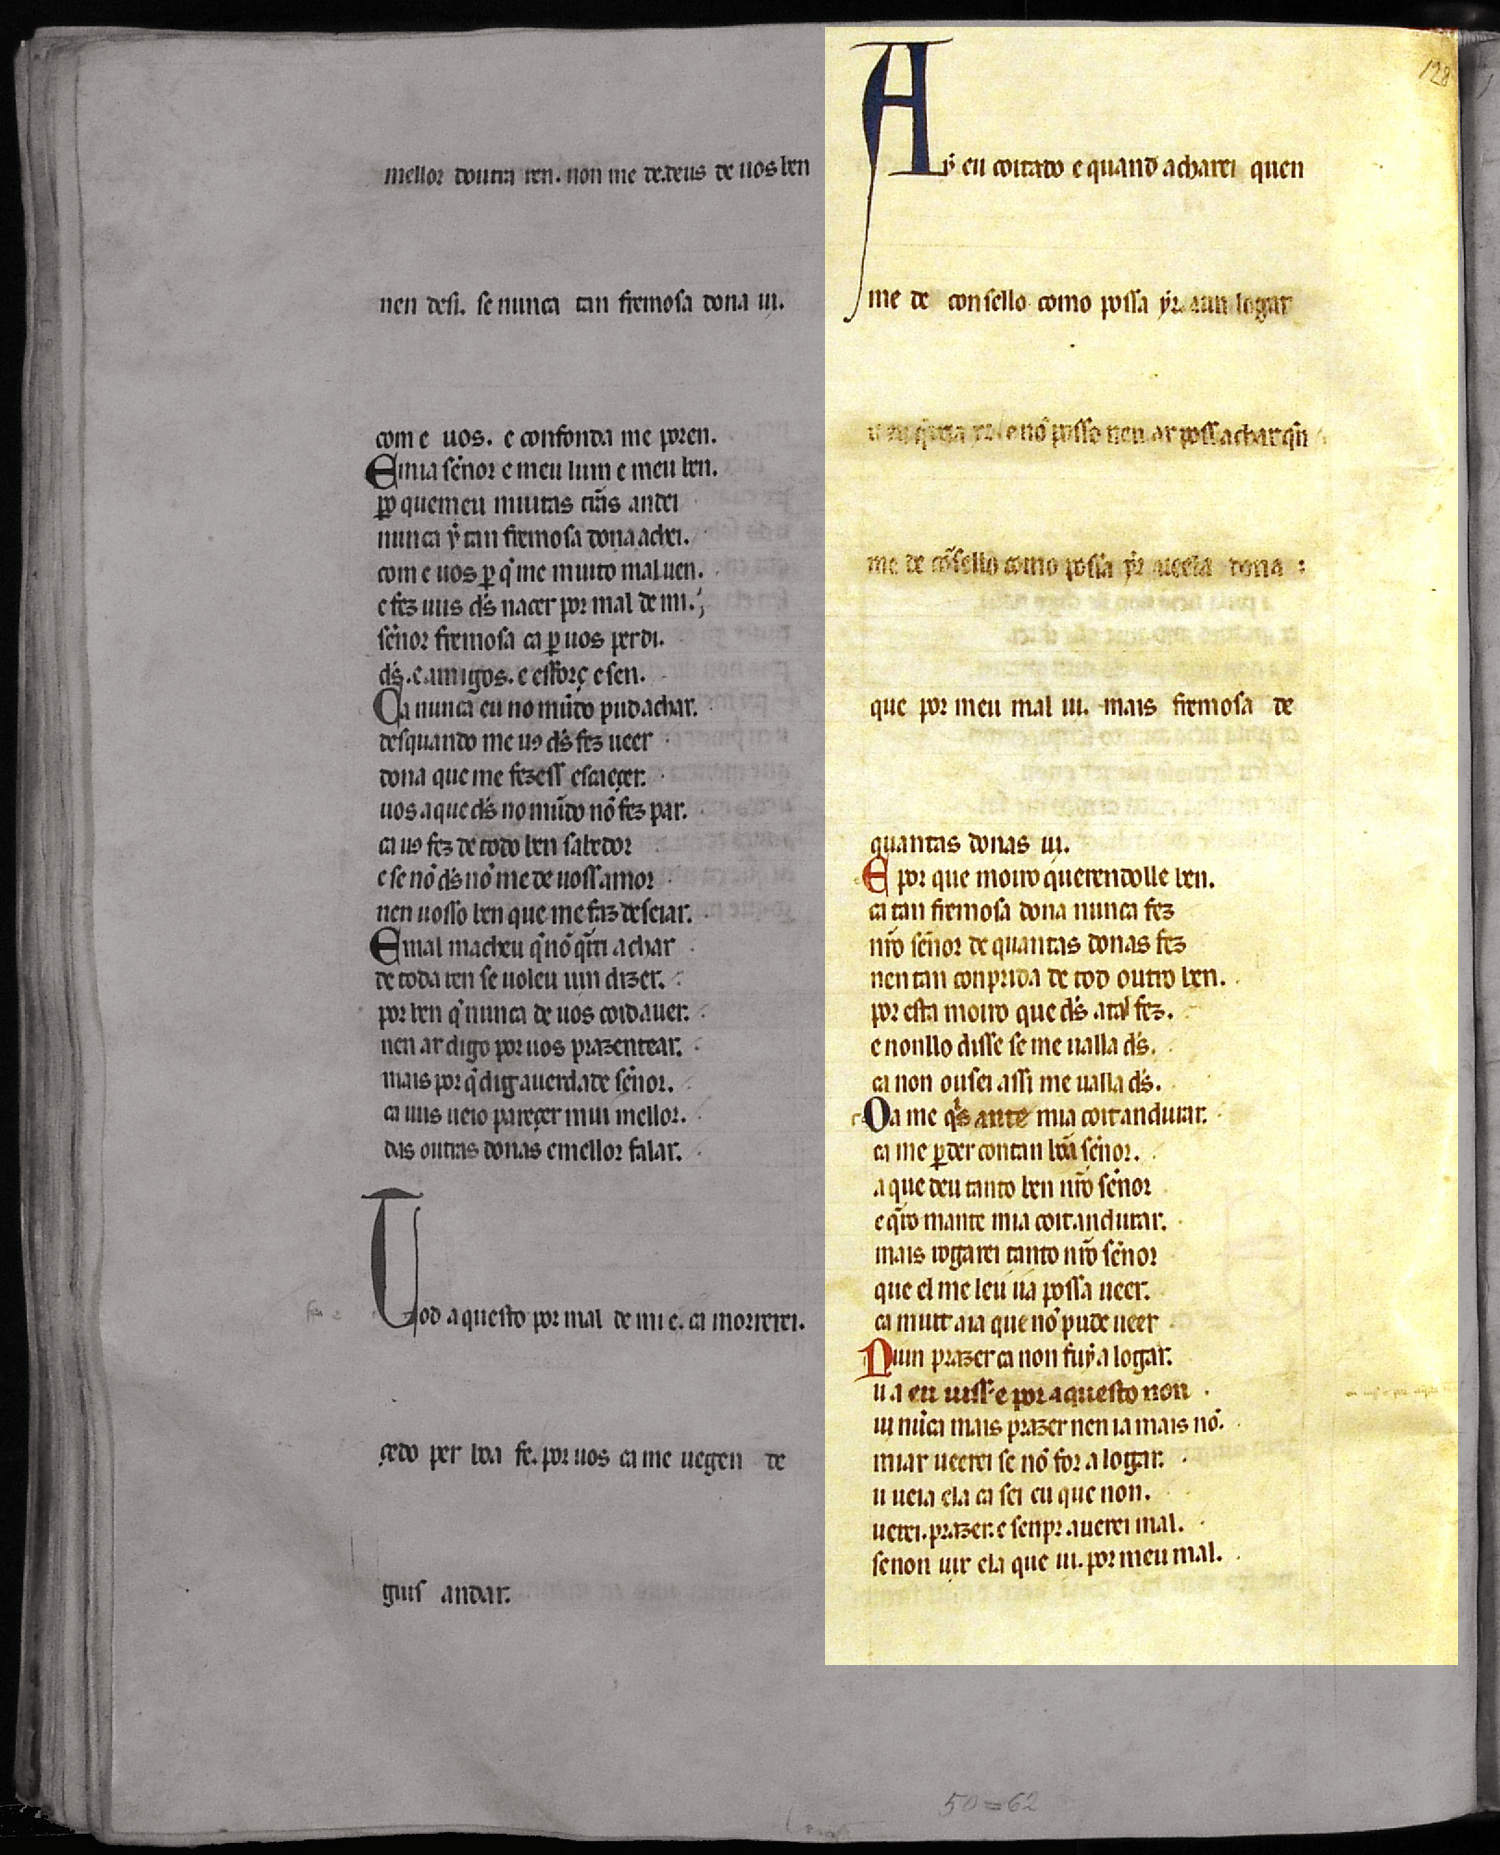 mellor doutra ren. non me de.deus de uos ben
nen desi. se nunca tan fremosa dona ui.
com e uos. e confonda me poren.
E mia sẽnor e meu lum e meu ben.
ꝑo quemeu muitas t̃ras andei
nunca ẏ tan fremosa dona achei.
com e uos ꝑ q̃ me muito mal uen.
e fez uus d̃s nacer por mal de mi.
sẽnor fremosa ca ꝑ uos perdi.
d̃s. e amigos. e efforç e sen.
Ca nunca eu no mũdo pud achar.
desquando me uꝯ d̃s fez ueer
dona que me fezess escaeçer.
uos a que d̃s no mũdo nõ fez par.
ca uꝯ fez de todo ben sabedor
e se nõ d̃s nõ me de uoss amor
nen uosso ben que me faz deseiar.
E mal macheu q̃ nõ q̃rri achar
de toda ren se uoleu uin dizer.
por ben q̃ nunca de uos coid auer.
nen ar digo por uos prazentear.
mais por q̃ dig a uerdade sẽnor.
ca uus ueio pareçer mui mellor.
das outras donas e mellor falar.
Tod aquesto por mal de mi e. ca morrerei.
çedo per boa fe. por uos ca me uegen de
guis andar.
128
Aẏ eu coitado e quand acharei quen
me de consello como possa ẏr. aun logar
nõ posso nen ar poss achar quẽ
me de cõsello como possa ẏr aueela dona
que por meu mal ui. mais fremosa de
quantas donas ui.
E por que moiro querendolle ben.
ca tan fremosa dona nunca fez
nr̃o sẽnor de quantas donas fez
nen tan conprida de tod outro ben.
por esta moiro que d̃s atal fez.
e nonllo disse se me ualla d̃s.
ca non ousei assi me ualla d̃s.
Ca me q̃s ante mia coitandurar.
ca me ꝑder contan bõa sẽnor.
a que deu tanto ben nr̃o sẽnor
e q̃ro mante mia coitandurar.
mais rogarei tanto nr̃o sẽnor
que el me leu ua possa ueer.
ca muit aia que nõ pude ueer
Nuin prazer ca non fuẏ a logar.
u a eu uiss e por aquesto non
ui nũca mais prazer nen ia mais nõ.
miar ueerei se nõ for a logar.
u ueia ela ca sei eu que non.
uerei. prazer. e senpr auerei mal.
senon uir ela que ui. por meu mal.
50=62